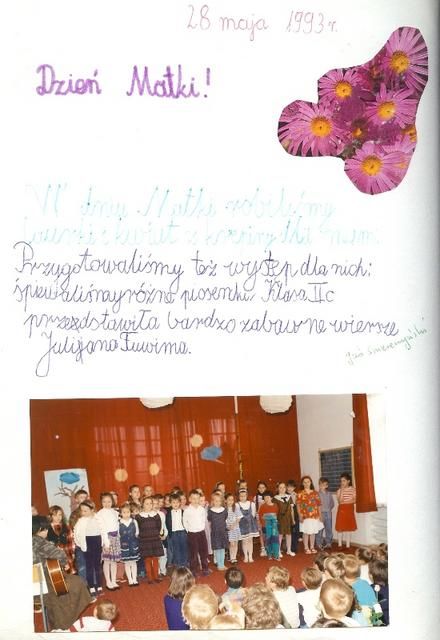 28 maja 1993 r.
Dzień Matki!
W dniu Matki robiliśmy
kwiat z
Przygotowaliśmy też występ dla nich:
śpiewaliśmy różne piosenki. Klasa IIc
przedstawiła bardzo zabawne wiersze
Julijana Tuwima.